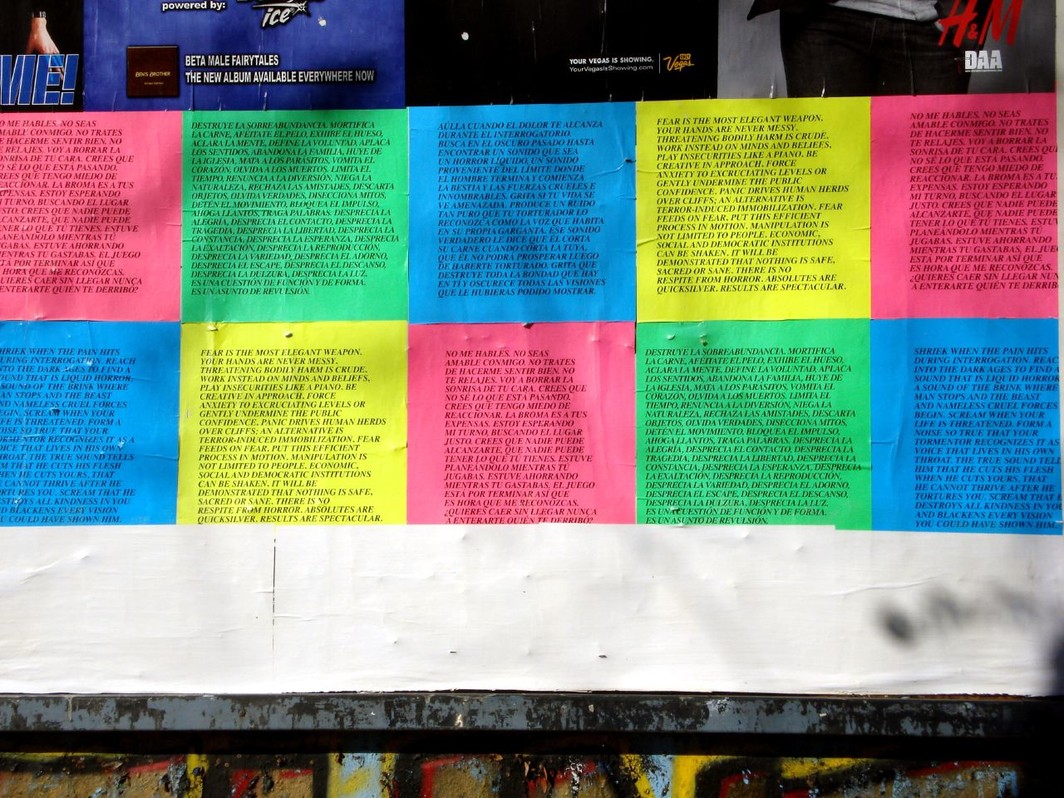 ME!
powered by:
ice
BEN'S BROTHER
BETA MALE FAIRYTALES
THE NEW ALBUM AVAILABLE EVERYWHERE NOW
YOUR VEGAS IS SHOWING.
YourVegasIsShowing.com
Vegas
H&M
DAA
O ME HABLES. NO SEAS
CONMIGO. NO TRATES
HACERME SENTIR BIEN. NO
RELAJES. VOY A BORRAR LA
ONRISA DE TU CARA. CREES QUE
O SÉ LO QUE ESTÁ PASANDO.
REES QUE TENGO MIEDO DE
EACCIONAR. LA BROMA ES A TUS
XPENSAS. ESTOY ESPERANDO
I TURNO, BUSCANDO EL LUGAR
USTO. CREES QUE NADIE PUEDE
LCANZARTE, QUE NADIE PUEDE
ENER LO QUE TÚ TIENES. ESTUVE
LANEÁNDOLO MIENTRAS TÚ
UGABAS. ESTUVE AHORRANDO
IENTRAS TU GASTABAS. EL JUEGO
TÁ POR TERMINAR ASÍ QUE
S HORA QUE ME RECONOZCAS.
UIERES CAER SIN LLEGAR NUNCA
ENTERARTE QUIÉN TE DERRIBÓ?
DESTRUYE LA SOBREABUNDANCIA. MORTIFICA
LA CARNE, AFÉITATE EL PELO, EXHIBE EL HUESO,
ACLARA LA MENTE, DEFINE LA VOLUNTAD, APLACA
LOS SENTIDOS, ABANDONA LA FAMILIA, HUYE DE
LA IGLESIA, MATA A LOS PARÁSITOS, VOMITA EL
CORAZÓN, OLVIDA A LOS MUERTOS. LIMITA EL
TIEMPO, RENUNCIA A LA DIVERSIÓN, NIEGA LA
NATURALEZA, RECHAZA LAS AMISTADES, DESCARTA
OBJETOS, OLVIDA VERDADES, DISECCIONA MITOS,
DETÉN EL MOVIMIENTO, BLOQUEA EL IMPULSO,
AHOGA LLANTOS, TRAGA PALABRAS. DESPRECIA LA
ALEGRÍA, DESPRECIA EL CONTACTO, DESPRECIA LA
TRAGEDIA, DESPRECIA LA LIBERTAD, DESPRECIA LA
CONSTANCIA, DESPRECIA LA ESPERANZA, DESPRECIA
LA EXALTACIÓN, DESPRECIA LA REPRODUCCIÓN,
DESPRECIA LA VARIEDAD, DESPRECIA EL ADORNO,
DESPRECIA EL ESCAPE, DESPRECIA EL DESCANSO,
DESPRECIA LA DULZURA, DESPRECIA LA LUZ.
ES UNA CUESTIÓN DE FUNCIÓN Y DE FORMA.
ES UN ASUNTO DE REVULSIÓN.
AÚLLA CUANDO EL DOLOR TE ALCANZA
DURANTE EL INTERROGATORIO.
BUSCA EN EL OSCURO PASADO HASTA
ENCONTRAR UN SONIDO QUE SEA
UN HORROR LÍQUIDO, UN SONIDO
PROVENIENTE DEL LÍMITE DONDE
EL HOMBRE TERMINA Y COMIENZA
LA BESTIA Y LAS FUERZAS CRUELES E
INNOMBRABLES. GRITA SI TU VIDA SE
VE AMENAZADA. PRODUCE UN RUIDO
TAN PURO QUE TU TORTURADOR LO
RECONOZCA COMO LA VOZ QUE HABITA
EN SU PROPIA GARGANTA. ESE SONIDO
VERDADERO LE DICE QUE ÉL CORTA
SU CARNE CUANDO CORTA LA TUYA,
QUE ÉL NO PODRÁ PROSPERAR LUEGO
DE HABERTE TORTURADO. GRITA QUE
DESTRUYE TODA LA BONDAD QUE HAY
EN TI Y OSCURECE TODAS LAS VISIONES
QUE LE HUBIERAS PODIDO MOSTRAR.
FEAR IS THE MOST ELEGANT WEAPON.
YOUR HANDS ARE NEVER MESSY.
THREATENING BODILY HARM IS CRUDE.
WORK INSTEAD ON MINDS AND BELIEFS,
PLAY INSECURITIES LIKE A PIANO. BE
CREATIVE IN APPROACH. FORCE
ANXIETY TO EXCRUCIATING LEVELS OR
GENTLY UNDERMINE THE PUBLIC
CONFIDENCE. PANIC DRIVES HUMAN HERDS
OVER CLIFFS; AN ALTERNATIVE IS
TERROR-INDUCED IMMOBILIZATION. FEAR
FEEDS ON FEAR. PUT THIS EFFICIENT
PROCESS IN MOTION. MANIPULATION IS
NOT LIMITED TO PEOPLE. ECONOMIC,
SOCIAL AND DEMOCRATIC INSTITUTIONS
CAN BE SHAKEN. IT WILL BE
DEMONSTRATED THAT NOTHING IS SAFE,
SACRED OR SANE. THERE IS NO
RESPITE FROM HORROR. ABSOLUTES ARE
QUICKSILVER. RESULTS ARE SPECTACULAR.
NO ME HABLES. NO SEAS
AMABLE CONMIGO. NO TRATES
DE HACERME SENTIR BIEN. NO
TE RELAJES. VOY A BORRAR LA
SONRISA DE TU CARA. CREES QUE
NO SÉ LO QUE ESTÁ PASANDO.
CREES QUE TENGO MIEDO DE
REACCIONAR. LA BROMA ES A TU
EXPENSAS. ESTOY ESPERANDO
MI TURNO, BUSCANDO EL LUGAR
JUSTO. CREES QUE NADIE PUEDE
ALCANZARTE, QUE NADIE PUEDE
TENER LO QUE TÚ TIENES. ESTUV
PLANEÁNDOLO MIENTRAS TÚ
JUGABAS. ESTUVE AHORRANDO
MIENTRAS TU GASTABAS. EL JUE
ESTÁ POR TERMINAR ASÍ QUE
ES HORA QUE ME RECONOZCAS.
¿QUIERES CAER SIN LLEGAR NU
A ENTERARTE QUIÉN TE DERRIB
SHRIEK WHEN THE PAIN HITS
URING INTERROGATION. REACH
NTO THE DARK AGES TO FIND A
OUND THAT IS LIQUID HORROR,
SOUND OF THE BRINK WHERE
AN STOPS AND THE BEAST
ND NAMELESS CRUEL FORCES
EGIN. SCREAM WHEN YOUR
IFE IS THREATENED. FORM A
OISE SO TRUE THAT YOUR
ORMENTOR RECOGNIZES IT AS A
OICE THAT LIVES IN HIS OWN
HROAT. THE TRUE SOUND TELLS
IM THAT HE CUTS HIS FLESH
HEN HE CUTS YOURS, THAT
E CANNOT THRIVE AFTER HE
ORTURES YOU. SCREAM THAT HE
STROYS ALL KINDNESS IN YOU
ND BLACKENS EVERY VISION
U COULD HAVE SHOWN HIM.
FEAR IS THE MOST ELEGANT WEAPON.
YOUR HANDS ARE NEVER MESSY.
THREATENING BODILY HARM IS CRUDE.
WORK INSTEAD ON MINDS AND BELIEFS,
PLAY INSECURITIES LIKE A PIANO. BE
CREATIVE IN APPROACH. FORCE
ANXIETY TO EXCRUCIATING LEVELS OR
GENTLY UNDERMINE THE PUBLIC
CONFIDENCE. PANIC DRIVES HUMAN HERDS
OVER CLIFFS; AN ALTERNATIVE IS
TERROR-INDUCED IMMOBILIZATION. FEAR
FEEDS ON FEAR. PUT THIS EFFICIENT
PROCESS IN MOTION. MANIPULATION IS
NOT LIMITED TO PEOPLE. ECONOMIC,
SOCIAL AND DEMOCRATIC INSTITUTIONS
CAN BE SHAKEN. IT WILL BE
DEMONSTRATED THAT NOTHING IS SAFE,
SACRED OR SANE. THERE IS NO
RESPITE FROM HORROR. ABSOLUTES ARE
QUICKSILVER. RESULTS ARE SPECTACULAR.
NO ME HABLES. NO SEAS
AMABLE CONMIGO. NO TRATES
DE HACERME SENTIR BIEN. NO
TE RELAJES. VOY A BORRAR LA
SONRISA DE TU CARA. CREES QUE
NO SÉ LO QUE ESTÁ PASANDO.
CREES QUE TENGO MIEDO DE
REACCIONAR. LA BROMA ES A TUS
EXPENSAS. ESTOY ESPERANDO
MI TURNO, BUSCANDO EL LUGAR
JUSTO. CREES QUE NADIE PUEDE
ALCANZARTE, QUE NADIE PUEDE
TENER LO QUE TÚ TIENES. ESTUVE
PLANEÁNDOLO MIENTRAS TÚ
JUGABAS. ESTUVE AHORRANDO
MIENTRAS TU GASTABAS. EL JUEGO
ESTÁ POR TERMINAR ASÍ QUE
ES HORA QUE ME RECONOZCAS.
¿QUIERES CAER SIN LLEGAR NUNCA
A ENTERARTE QUIÉN TE DERRIBÓ?
DESTRUYE LA SOBREABUNDANCIA. MORTIFICA
LA CARNE, AFÉITATE EL PELO, EXHIBE EL HUESO,
ACLARA LA MENTE, DEFINE LA VOLUNTAD, APLACA
LOS SENTIDOS, ABANDONA LA FAMILIA, HUYE DE
LA IGLESIA, MATA A LOS PARÁSITOS, VOMITA EL
CORAZÓN, OLVIDA A LOS MUERTOS. LIMITA EL
TIEMPO, RENUNCIA A LA DIVERSIÓN, NIEGA LA
NATURALEZA, RECHAZA LAS AMISTADES, DESCARTA
OBJETOS, OLVIDA VERDADES, DISECCIONA MITOS,
DETÉN EL MOVIMIENTO, BLOQUEA EL IMPULSO,
AHOGA LLANTOS, TRAGA PALABRAS. DESPRECIA LA
ALEGRÍA, DESPRECIA EL CONTACTO, DESPRECIA LA
TRAGEDIA, DESPRECIA LA LIBERTAD, DESPRECIA LA
CONSTANCIA, DESPRECIA LA ESPERANZA, DESPRECIA
LA EXALTACIÓN, DESPRECIA LA REPRODUCCIÓN,
DESPRECIA LA VARIEDAD, DESPRECIA EL ADORNO,
DESPRECIA EL ESCAPE, DESPRECIA EL DESCANSO,
DESPRECIA LA DULZURA, DESPRECIA LA LUZ.
ES UNA CUESTIÓN DE FUNCIÓN Y DE FORMA.
ES UN ASUNTO DE REVULSIÓN.
SHRIEK WHEN THE PAIN HITS
DURING INTERROGATION. REAC
INTO THE DARK AGES TO FIND A
SOUND THAT IS LIQUID HORROR
A SOUND OF THE BRINK WHERE
MAN STOPS AND THE BEAST
AND NAMELESS CRUEL FORCES
BEGIN. SCREAM WHEN YOUR
LIFE IS THREATENED. FORM A
NOISE SO TRUE THAT YOUR
TORMENTOR RECOGNIZES IT AS
VOICE THAT LIVES IN HIS OWN
THROAT. THE TRUE SOUND TELL
HIM THAT HE CUTS HIS FLESH
WHEN HE CUTS YOURS, THAT
HE CANNOT THRIVE AFTER HE
TORTURES YOU. SCREAM THAT
DESTROYS ALL KINDNESS IN YO
AND BLACKENS EVERY VISION
YOU COULD HAVE SHOWN HIM.